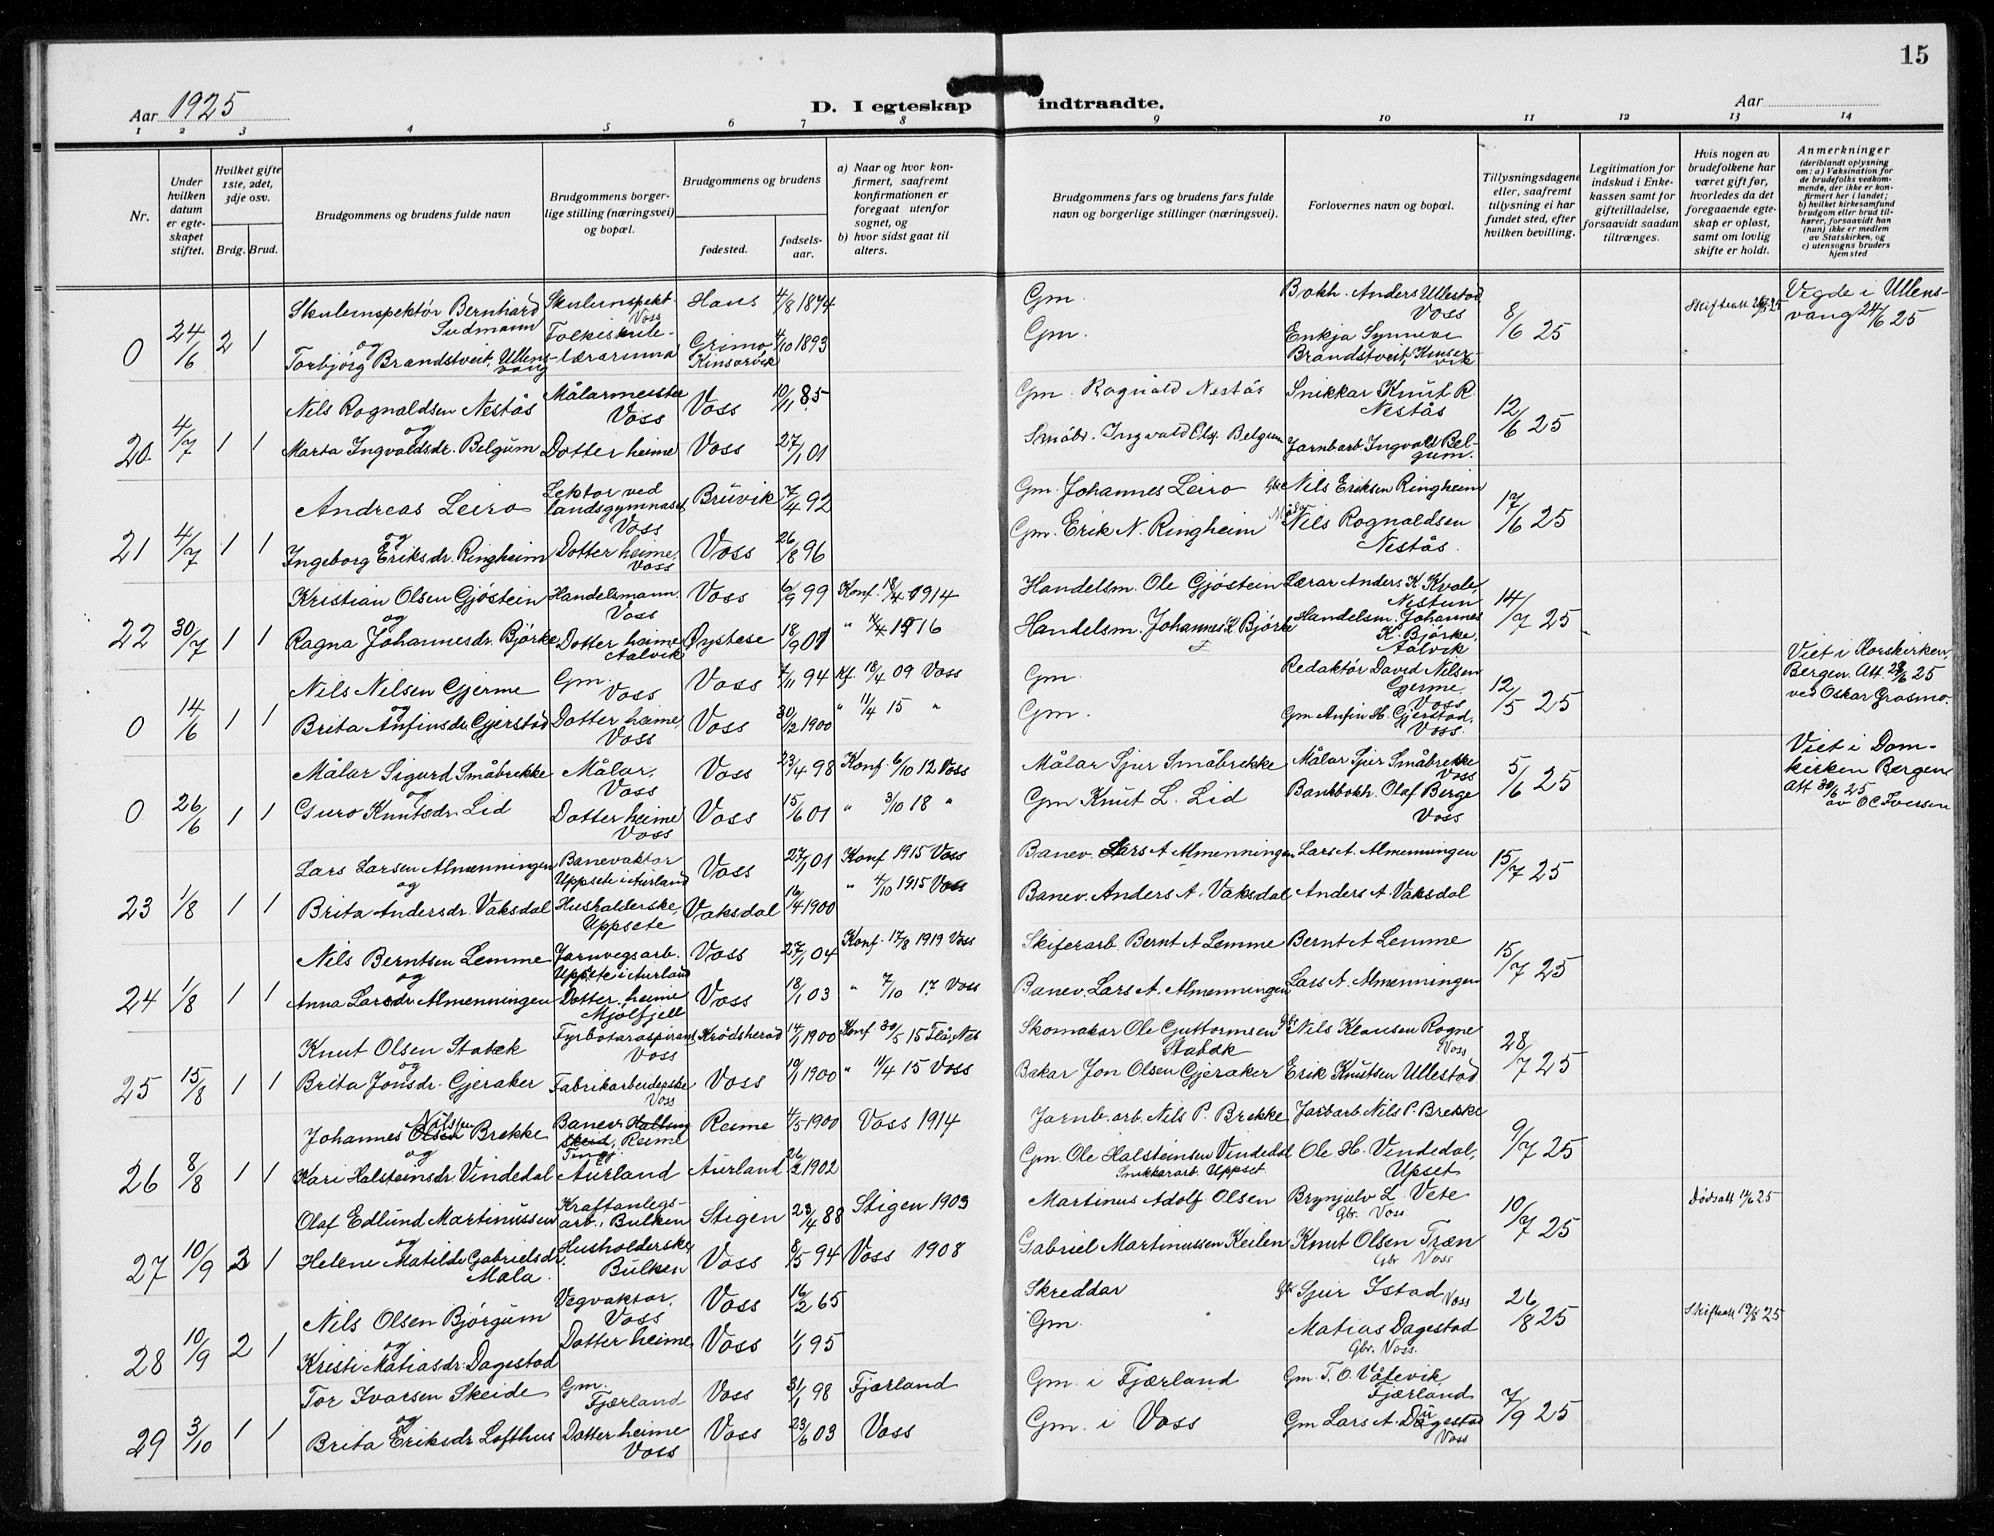 15
Aar 1925
D. I egteskap indtraadte.
Aar
1 2 3 4 5 6 7 8 9 10 11 12 13 14
Nr.
Under hvilken datum er egteskapet stiftet.
Hvilket gifte 1ste, 2det, 3dje osv.
Brdg. Brud.
Brudgommens og brudens fulde navn
Brudgommens borgerlige stilling (næringsvei) og bopæl.
Brudgommens og brudens
fødested.
fødselsaar.
a) Naar og hvor konfirmert, saafremt konfirmationen er foregaat utenfor sognet, og
b) hvor sidst gaat til alters.
Brudgommens fars og brudens fars fulde navn og borgerlige stillinger (næringsvei).
Forlovernes navn og bopæl.
Tillysningsdagene eller, saafremt tillysning ei har fundet sted, efter hvilken bevilling.
Legitimation for indskud i Enkekassen samt for giftetilladelse, forsaavidt saadan tiltrænges.
Hvis nogen av brudefolkene har været gift før, hvorledes da det foregaaende egteskap er opløst, samt om lovlig skifte er holdt.
Anmerkninger
(deriblandt oplysning om: a) Vaksination for de brudefolks vedkommende, der ikke er konfirmert her i landet;
b) hvilket kirkesamfund brudgom eller brud tilhører, forsaavidt han (hun) ikke er medlem av Statskirken, og
c) utensogns bruders hjemsted
0 24/6 2 1 Skuleinspektør Bernhard Sudmann Skuleinspekt. Voss Haus 4/8 1874 Gm. Bokh. Anders Ullestad Voss 8/6 25 Skifteatt 26/5 25 Vigde i Ullensvang 24/6 25
og
Torbjörg Brandstveit, Ullensvang Folkeskulelærarinna Grimo Kinsarvik 4/10 1893 Gm. Enkja Synneve Brandstveit, Kinservik
20 4/7 1 1 Nils Rognaldsen Nestås Målarmeister Voss Voss 10/11 85 Gm. Rognald Nestås Snikkar Knut R. Nestås 12/6 25
og
Marta Ingvaldsdr. Belgum Dotter heime Voss 27/1 01 Småbr. Ingvald Els. Belgum Jarnbarb. Ingvald Belgum.
21 4/7 1 1 Andreas Leiro Lektor ved landsgymnaset Voss Bruvik 7/4 92 Gm. Johannes Leiro Gbr. Nils Eriksen Ringheim 17/6 25
og
Ingeborg Eriksdr. Ringheim Dotter heime, Voss Voss 26/8 96 Gm. Erik N. Ringheim Målar Nils Rognaldsen Nestås.
22 30/7 1 1 Kristian Olsen Gjøstein Handelsmann. Voss Voss 6/9 99 Konf. 18/4 1914 Handelsm. Ole Gjøstein Lærar Anders K. Kvale, Nestun 14/7 25
og
Ragna Johannesdr. Bjørke Dotter heime, Aalvik Øystese 18/9 01 " 1916 Handelsm. Johannes K Bjørke Handelsm. Johannes K. Bjørke, Aalvik
0 14/6 1 1 Nils Nilsen Gjerme Gm. Voss Voss 7/11 94 Kf. 18/4 09 Voss Gm. Redaktør David Nilsen Gjerme, Voss 12/5 25 Viet i Korskirken, Bergen. Att. 29/6 25 ved Oskar Grasmo.
og
Brita Anfinsdr. Gjerstad Dotter heime, Voss Voss 30/12 1900 " 11/4 15 " Gm. Gm Anfin H. Gjerstad, Voss.
0 26/6 1 1 Målar Sigurd Småbrekke Målar, Voss Voss 23/4 98 Konf. 6/10 12 Voss Målar Sjur Småbrekke Målar Sjur Småbrekke Voss 5/6 25 Viet i Domkirken Bergen Att 30/6 25 av OC Iversen
og
Guro Knutsdr. Lid Dotter heime Voss Voss 15/6 01 " 3/10 18 " Gm Knut L. Lid Bankbokh. Olaf Berge Voss
23 1/8 1 1 Lars Larsen Almenningen Banevaktar Uppsete i Aurland Voss 27/1 01 Konf 1915 Voss Banev. Lars A Almenningen Lars A. Almenningen 15/7 25
og
Brita Andersdr. Vaksdal Husholderske, Uppsete Vaksdal 16/4 1900 " 4/10 1915 Voss Banev. Anders A. Vaksdal Anders A. Vaksdal
24 1/8 1 1 Nils Berntsen Lemme Jarnvegsarb. Uppsete i Aurland Voss 27/1 04 Konf. 17/8 1919 Voss Skiferarb. Bernt A Lemme Bernt A Lemme 15/7 25
og
Anna Larsdr. Almenningen Dotter heime Mjølfjell Voss 18/1 03 " 7/10 17 Voss Banev. Lars A. Almenningen Lars A. Almenningen
25 15/8 1 1 Knut Olsen Stabæk Fyrbøtaraspirant Voss Krødsherad 14/1 1900 Konf 30/5 15 Flå, Nes Skomakar Ole Guttormsen Stabæk Gbr. Nils Klausen Rogne Voss 28/7 25
og
Brita Jonsdr. Gjeraker Fabrikarbeiderske Voss Voss 19/1 1900 " 11/4 15 Voss Bakar Jon Olsen Gjeraker Erik Knutsen Ullestad
26 8/8 1 1 Johannes Olsen Nilssen Brekke Banev. Halling skeid, Reime Reime 4/5 1900 Voss 1914 Jarnb. arb. Nils P. Brekke Jarbarb. Nils P. Brekke 9/7 25
og
Kari Halsteinsdr. Vindedal Aurland Aurland 26/2 1902 Gm. Ole Halsteinsen Vindedal Snikkararb. Uppset Ole H. Vindedal, Upset
27 10/9 2 1 Olaf Edlund Martinussen Kraftanlegsarb. Bulken Stigen 23/4 88 Stigen 1903 Martinus Adolf Olsen Brynjulv L. Vete Gbr. Voss 10/7 25 Dødsatt 17/6 25
og
Helene Matilde Gabrielsdr. Mala. Husholderske, Bulken Voss 8/5 94 Voss 1908 Gabriel Martinussen Keilen Knut Olsen Træn Gbr Voss
28 10/9 2 1 Nils Olsen Bjørgum Vegvaktar, Voss Voss 16/2 65 Skreddar Gbr Sjur Istad Voss 26/8 25 Skifteatt 19/8 25
og
Kristi Matiasdr. Dagestad Dotter heime, Voss 1/1 95 Gm. Matias Dagestad Gbr. Voss.
29 3/10 1 1 Tor Ivarsen Skeide Gm. Fjærland Voss 31/1 98 Fjærland Gm. i Fjærland Gm. T. O. Våtevik, Fjærland 7/9 25
og
Brita Eriksdr. Lofthus Dotter heime Voss Voss 23/6 03 Voss Gm. i Voss Gm Lars A. Dugestad Voss